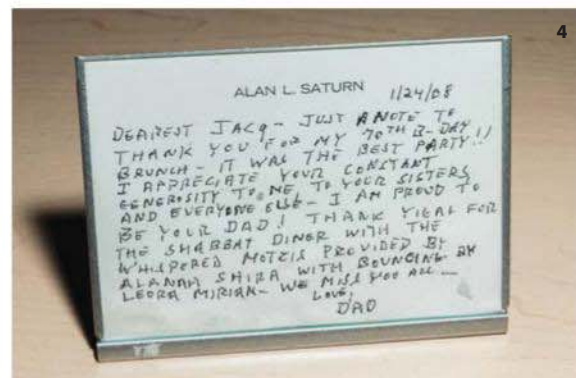 4
ALAN L. SATURN
1/24/08
DEAREST JACQ- JUST A NOTE TO
THANK YOU FOR MY 70TH B-DAY
BRUNCH- IT WAS THE BEST PARTY!!
I APPRECIATE YOUR CONSTANT
GENEROSITY TO ME, TO YOUR SISTERS
AND EVERYONE ELSE- I AM PROUD TO
BE YOUR DAD! THANK YIGAL FOR
THE SHABBAT DINER WITH THE
WHISPERED MOTZIS PROVIDED BY
ALANAH SHIRA WITH BOUNCING BY
LEORA MIRIAM- WE MISS YOU ALL-
LOVE,
DAD